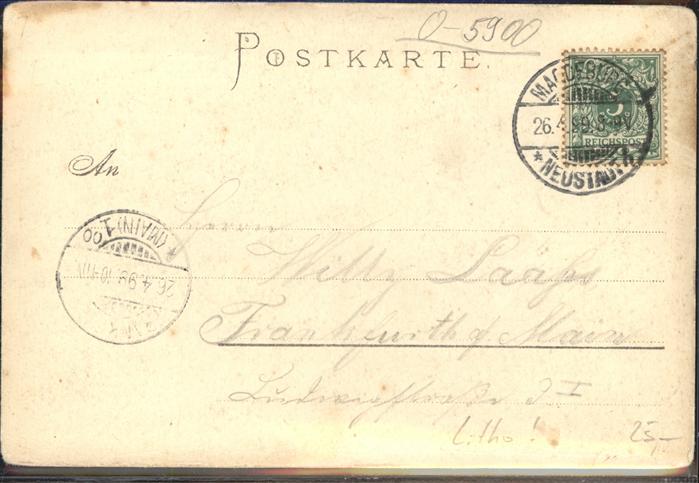 O-5900
POSTKARTE.
MAGDEBURG
5
26.4.99.8-9V.
REICHSPOST
* NEUSTADT
An
(MAIN) 1.
26.4.99.10-11N.
Herrn
Willy Paaps
Frankfurth a/ Main
Ludwigstraße I
Litho!
25,-